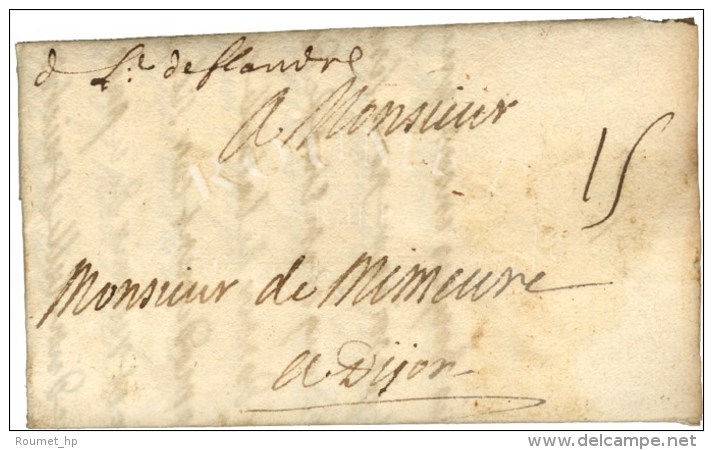 d L.e deflandre
A Monsieur
15
Monsieur de Mimeure
a Dijon
ROUMET
Roumet_hp
© delcampe.net